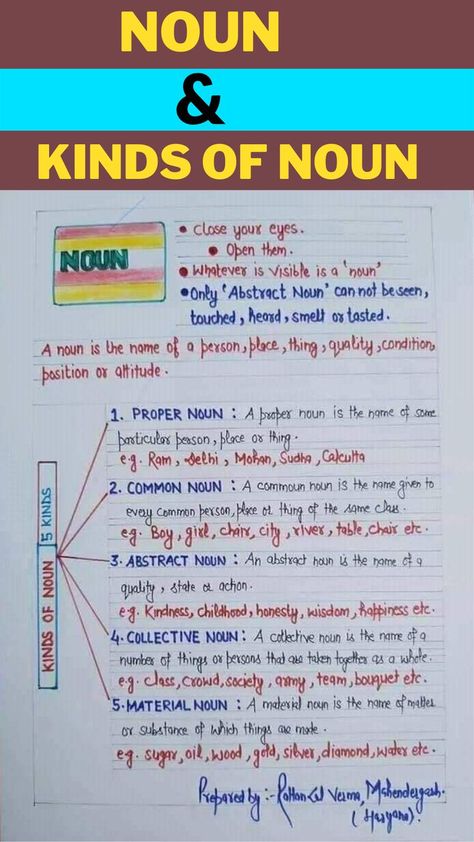 NOUN
&
KINDS OF NOUN
NOUN
• Close your eyes.
• Open them.
• Whatever is visible is a 'noun'
• Only 'Abstract Noun' can not be seen,
touched, heard, smelt or tasted.
A noun is the name of a person, place, thing, quality, condition,
position or attitude.
KINDS OF NOUN 5 KINDS
1. PROPER NOUN : A proper noun is the name of some
particular person, place or thing.
e.g. Ram, Delhi, Mohan, Sudha, Calcutta
2. COMMON NOUN : A commoun noun is the name given to
every common person, place or thing of the same class.
eg. Boy, girl, chair, city, river, table, chair etc.
3. ABSTRACT NOUN : An abstract noun is the name of a
quality, state or action.
e.g. Kindness, childhood, honesty, wisdom, happiness etc.
4. COLLECTIVE NOUN : A collective noun is the name of a
number of things or persons that are taken together as a whole.
e.g. class, crowd, society, army, team, bouquet etc.
5. MATERIAL NOUN : A material noun is the name of matter
or substance of which things are made.
eg. sugar, oil, wood, gold, silver, diamond, water etc.
Prepared by :- Verma,
(Haryana).